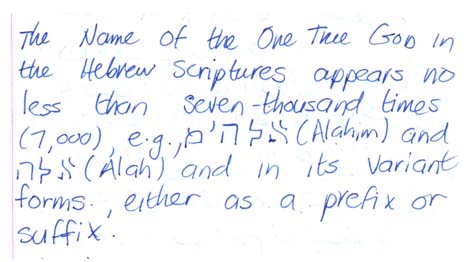 The Name of the One True GOD in
the Hebrew Scriptures appears no
less than seven-thousand times
(7,000), e.g., אלהים (Alahim) and
אלה (Alah) and in its variant
forms, either as a prefix or
suffix.